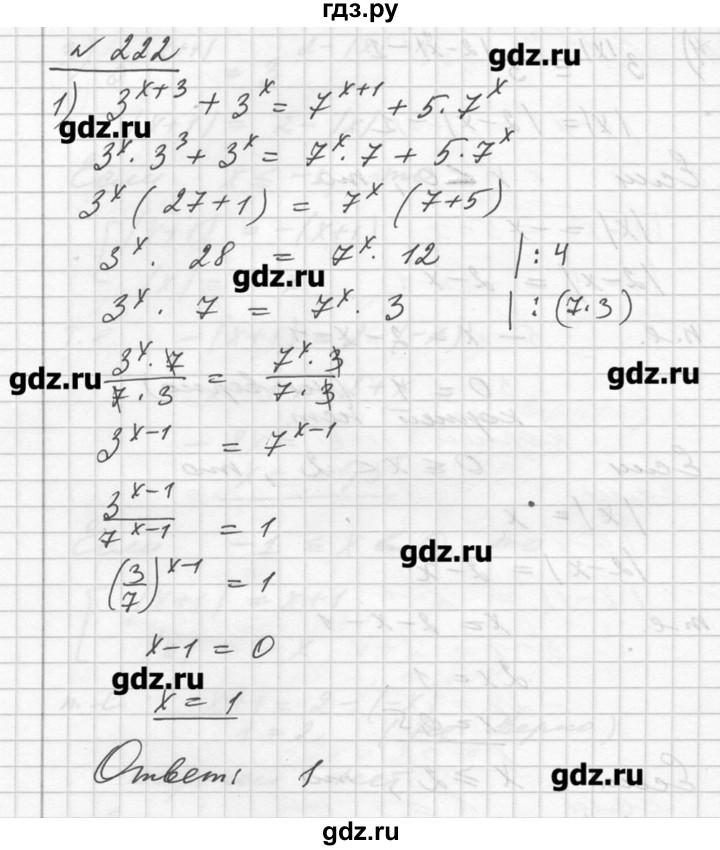 гдз.ру
№ 222
gdz.ru
1) 3^(x+3) + 3^x = 7^(x+1) + 5·7^x
gdz.ru
3^x · 3^3 + 3^x = 7^x · 7 + 5·7^x
3^x (27+1) = 7^x (7+5)
3^x · 28 = 7^x · 12 | : 4
gdz.ru
3^x · 7 = 7^x · 3 | : (7·3)
(3^x · 7)/(7 · 3) = (7^x · 3)/(7 · 3)
gdz.ru
gdz.ru
3^(x-1) = 7^(x-1)
3^(x-1)/7^(x-1) = 1
gdz.ru
(3/7)^(x-1) = 1
x-1 = 0
gdz.ru
x = 1
Ответ: 1
gdz.ru
gdz.ru